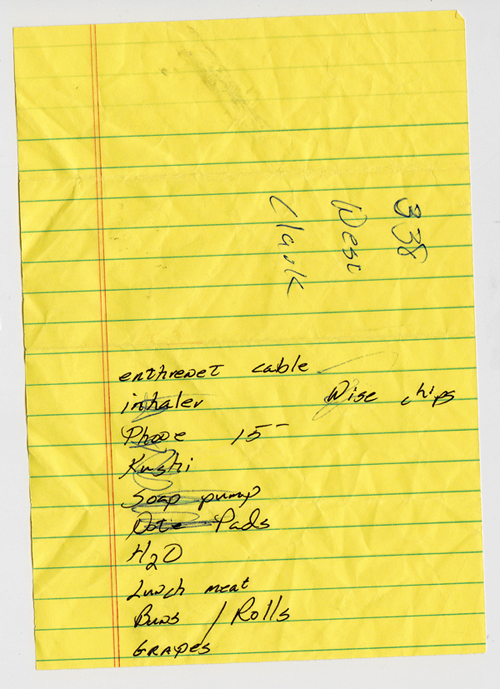 338
West
Clark
enthrenet cable
inhaler Wise chips
Phone 15-
Kushi
Soap pump
Note Pads
H2O
Lunch meat
Buns / Rolls
GRAPES